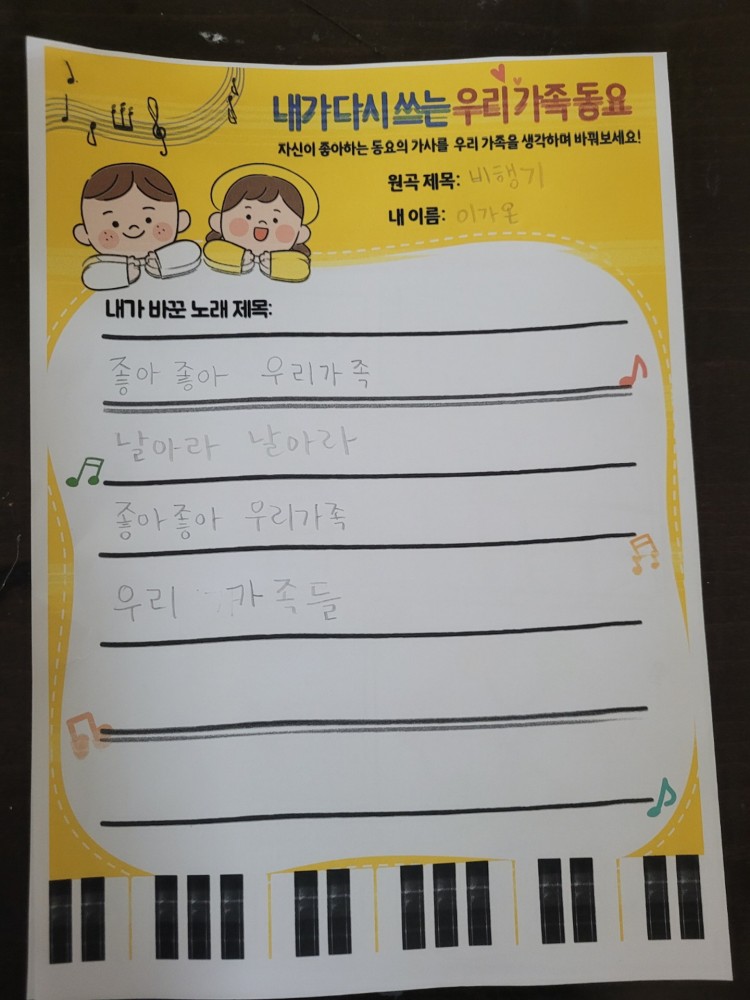 내가 다시 쓰는 우리 가족 동요
자신이 좋아하는 동요의 가사를 우리 가족을 생각하며 바꿔보세요!
원곡 제목: 비행기
내 이름: 이가온
내가 바꾼 노래 제목:
좋아 좋아 우리가족
날아라 날아라
좋아좋아 우리가족
우리 가족들